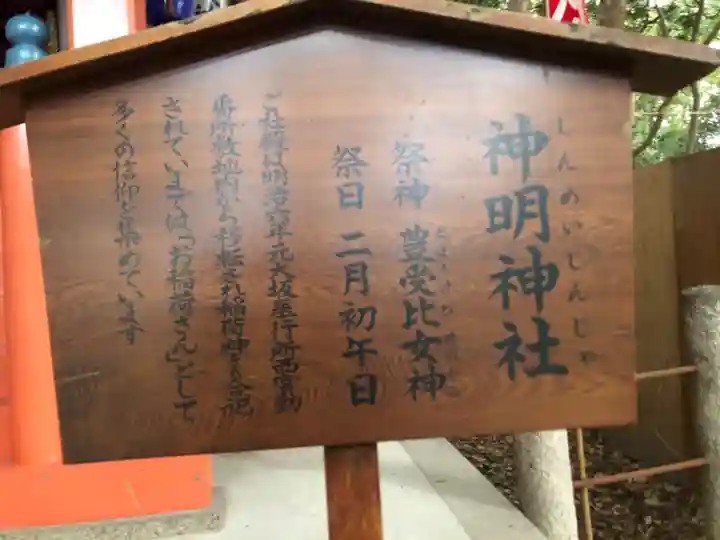 神明神社
しんめいじんじゃ
祭神 豊受比女神
とようけひめ
祭日 二月初午日
この社殿は明治五年元大坂奉行所西宮勤
番所敷地内から移転され稲荷神も合祀
されていますので「お稲荷さん」として
多くの信仰を集めています